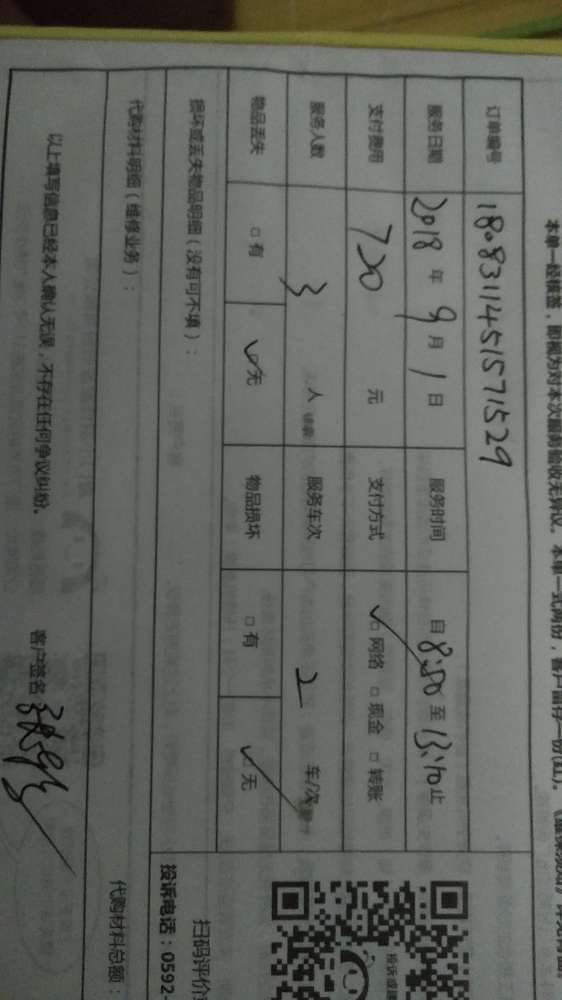 本单一经核签，即视为对本次服务验收无异议。本单一式两份，客户留存一份(红)。
订单编号 1808311451571529
服务日期 2018 年 9 月 1 日 服务时间 自 8:50 至 13:10 止
支付费用 720 元 支付方式 ☑ 网络 □ 现金 □ 转账
服务人数 3 人 服务车次 2 车/次
物品丢失 □ 有 ☑ 无 物品损坏 □ 有 ☑ 无
损坏或丢失物品明细（没有可不填）：
代购材料明细（维修业务）：
代购材料总额：
以上填写信息已经本人确认无误，不存在任何争议纠纷。 客户签名
扫码评价
投诉电话：0592-